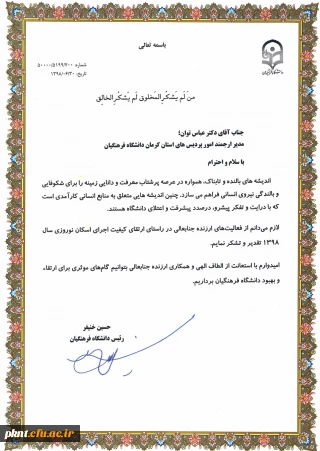 باسمه تعالی
شماره: ۵۰۰۰۰/۵۱۹۹/۷۰۰
تاریخ: ۱۳۹۸/۰۶/۳۰
من لَم یَشکُرِ المَخلوق لَم یَشکُرِ الخالِق
جناب آقای دکتر عباس توان؛
مدیر ارجمند امور پردیس های استان کرمان دانشگاه فرهنگیان
با سلام و احترام
اندیشه های بالنده و تابناک، همواره در عرصه پرشتاب معرفت و دانایی زمینه را برای شکوفایی
و بالندگی نیروی انسانی فراهم می سازد. چنین اندیشه هایی متعلق به منابع انسانی کارآمدی است
که با درایت و تفکر پیشرو، درصدد پیشرفت و اعتلای دانشگاه هستند.
لازم می‌دانم از فعالیت‌های ارزنده جنابعالی در راستای ارتقای کیفیت اجرای اسکان نوروزی سال
۱۳۹۸ تقدیر و تشکر نمایم.
امیدوارم با استعانت از الطاف الهی و همکاری ارزنده جنابعالی بتوانیم گام‌های موثری برای ارتقاء
و بهبود دانشگاه فرهنگیان برداریم.
حسین خنیفر
رئیس دانشگاه فرهنگیان
pknt.cfu.ac.ir